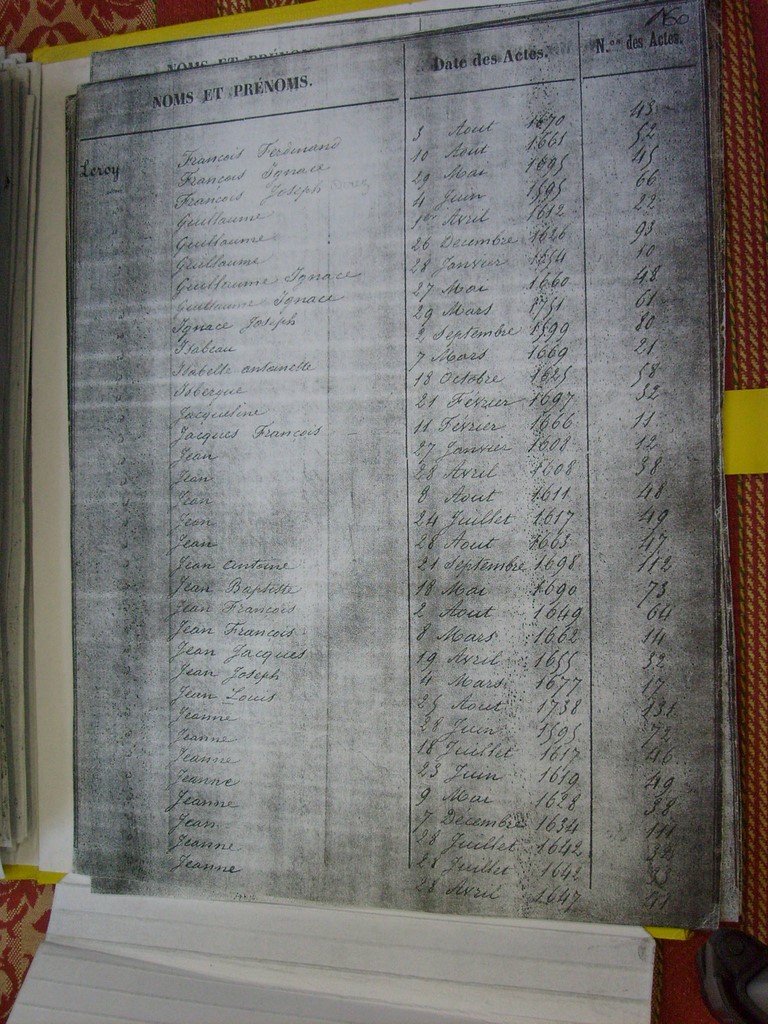 150
NOMS ET PRÉNOMS. Date des Actes. N.os des Actes.
Leroy Francois Ferdinand 3 Aout 1670 43
Francois Ignace 10 Aout 1661 52
François Joseph 29 Mai 1695 45
Guillaume 4 Juin 1595 66
Guillaume 1er Avril 1612 22
Guillaume 26 Decembre 1626 93
Guillaume Ignace 28 Janvier 1654 10
Guillaume Ignace 27 Mai 1660 48
Ignace Joseph 29 Mars 1751 61
Isabeau 2 Septembre 1599 80
Isabelle antoinette 7 Mars 1669 21
Isbergue 18 Octobre 1625 58
Jacqueline 21 Fevrier 1697 32
Jacques Francois 11 Fevrier 1666 11
Jean 27 Janvier 1608 12
Jean 28 Avril 1608 38
Jean 8 Aout 1611 48
Jean 24 Juillet 1617 49
Jean 28 Aout 1663 47
Jean antoine 21 Septembre 1698 112
Jean Baptiste 18 Mai 1690 73
Jean Francois 2 Aout 1649 64
Jean Francois 8 Mars 1662 14
Jean Jacques 19 Avril 1655 32
Jean Joseph 4 Mars 1677 17
Jean Louis 25 Aout 1738 131
Jeanne 28 Juin 1595 72
Jeanne 18 Juillet 1617 46
Jeanne 23 Juin 1619 49
Jeanne 9 Mai 1628 38
Jeanne 7 Decembre 1634 111
Jean 28 Juillet 1642 32
Jeanne 28 Juillet 1642 33
Jeanne 28 Avril 1647 41